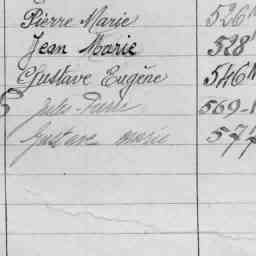 Pierre Marie 526
Jean Marie 528
Gustave Eugène 546
Jules-Pierre 569-1
Gustave Marie 577